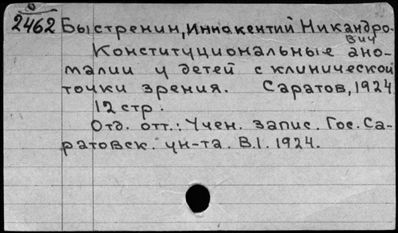 2462 Быстренин, Иннокентий Никандро-
вич
Конституциональные ано-
малии у детей с клинической
точки зрения. Саратов, 1924
12 стр.
Отд. отт.: Учен. запис. Гос. Са-
ратовск. ун-та. В.1. 1924.